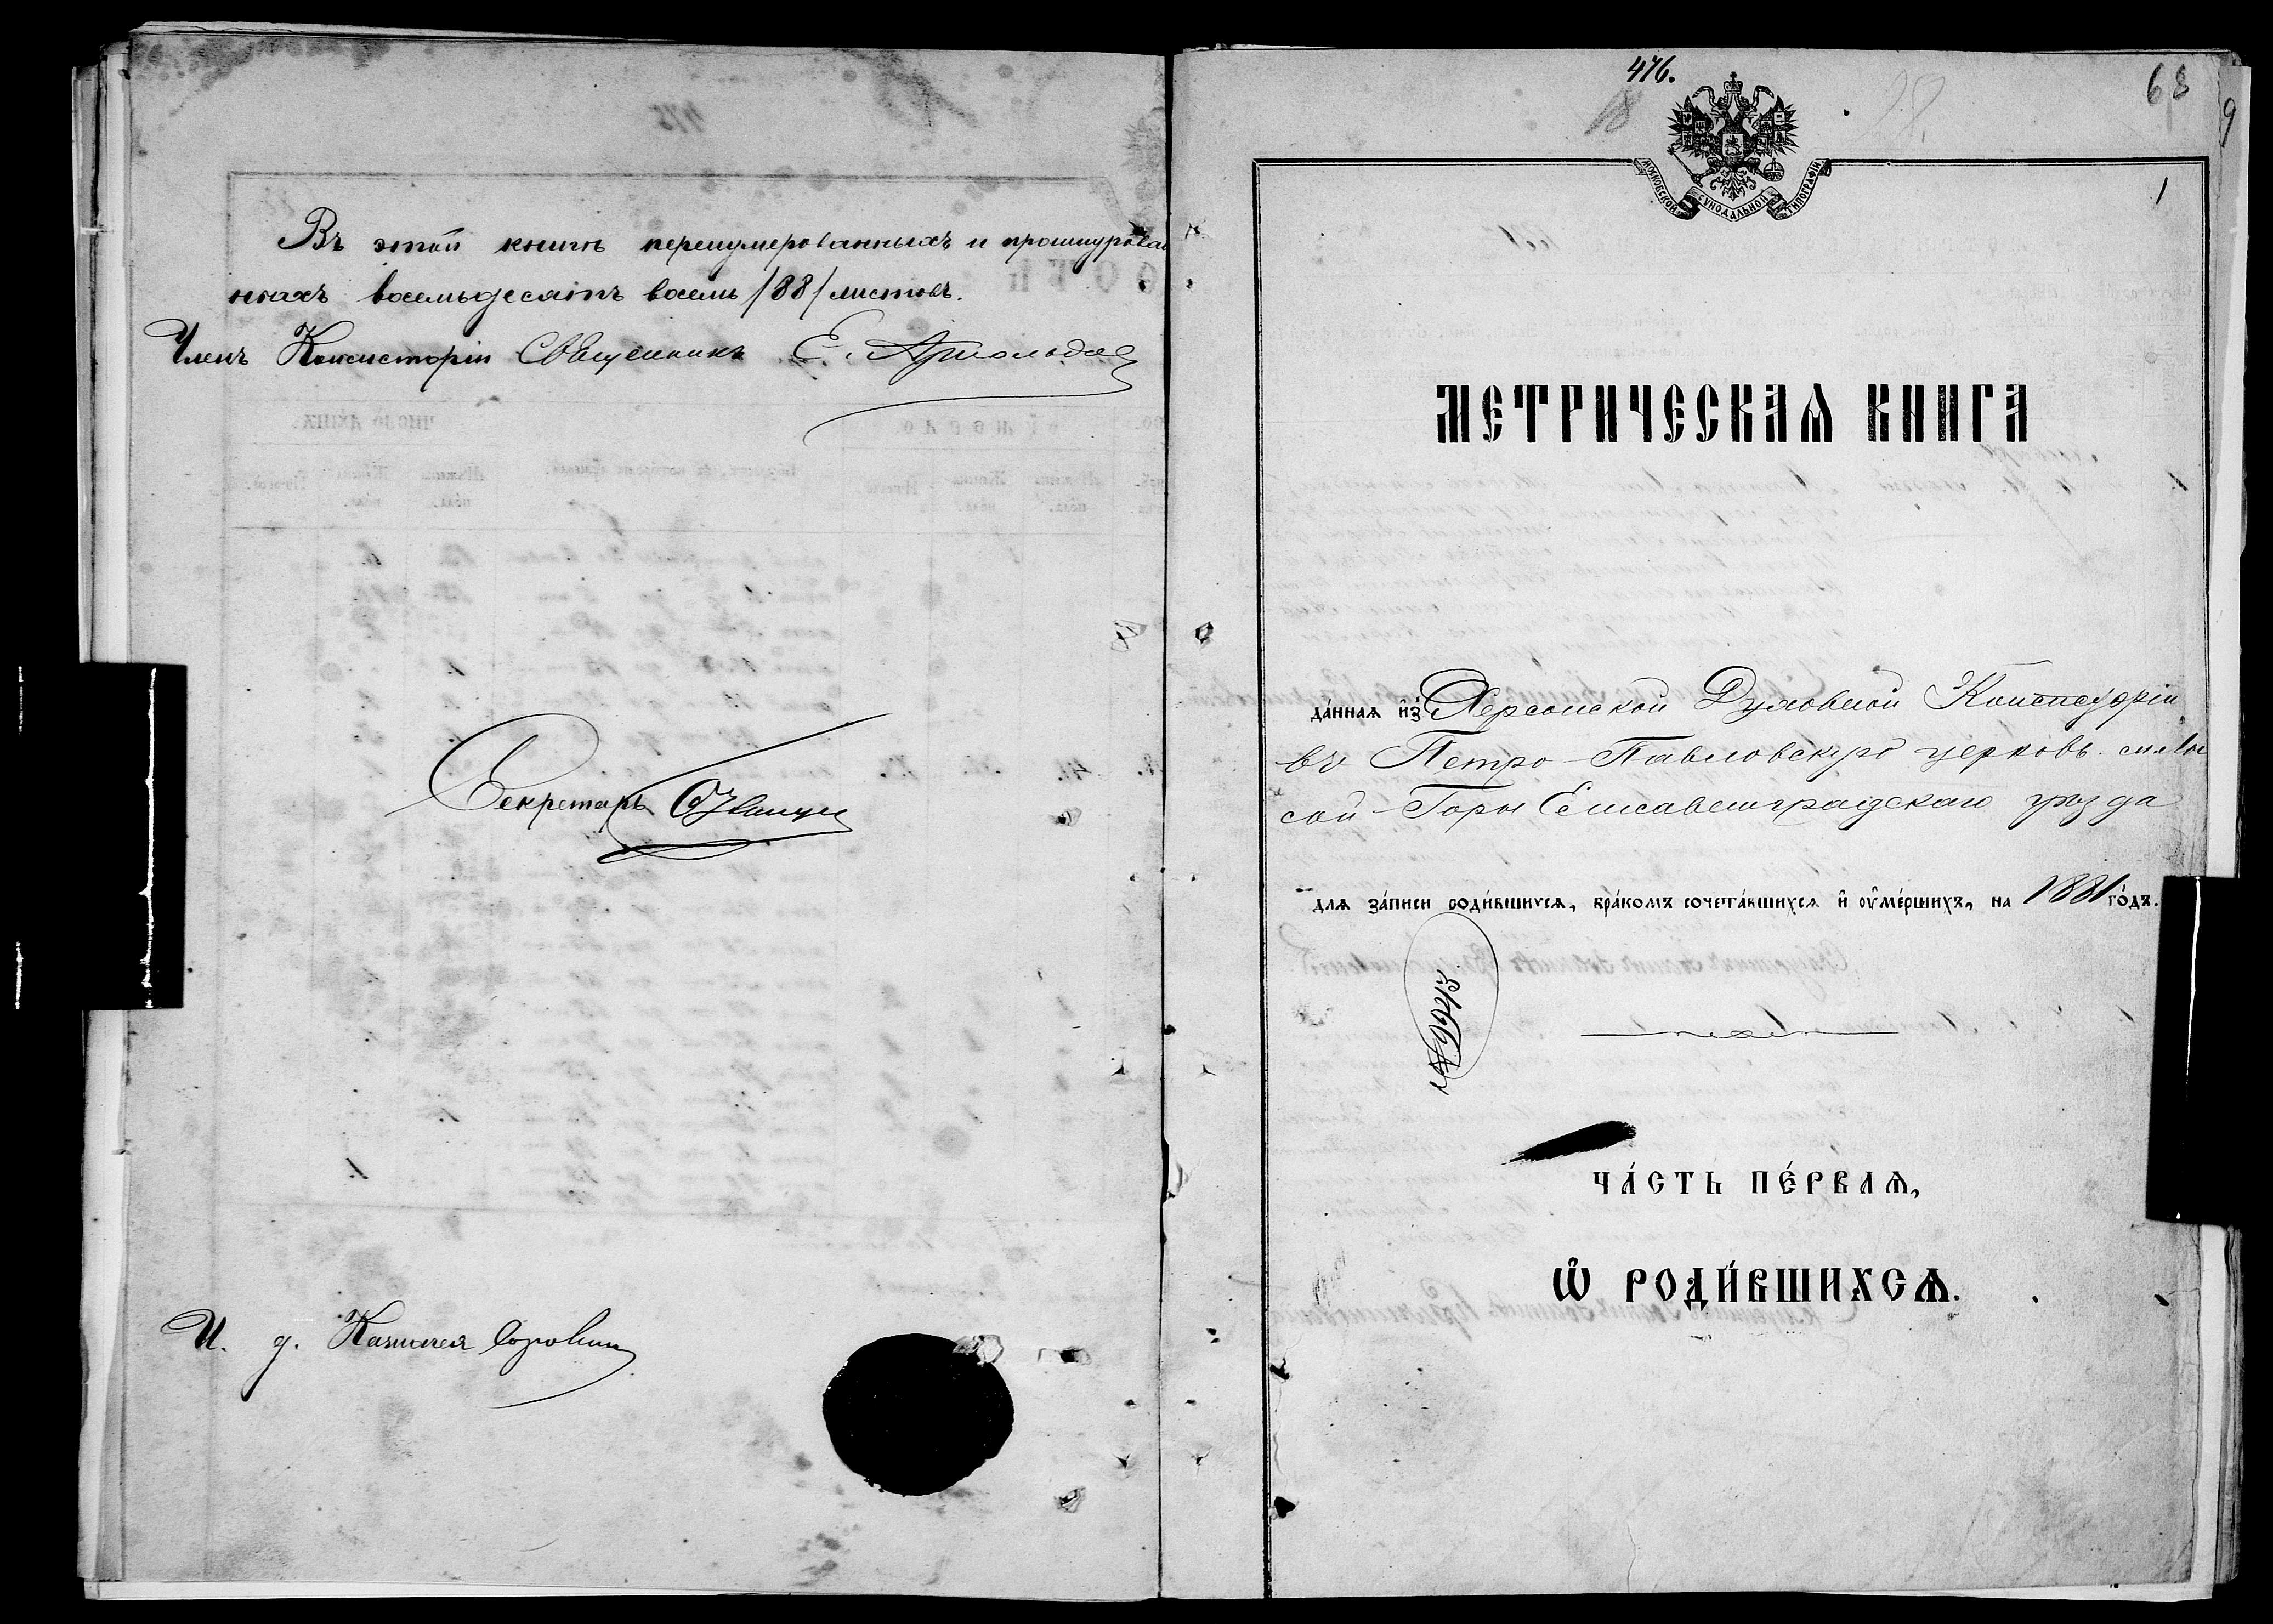 Въ этой книгѣ перенумерованныхъ и прошнурован
ныхъ восемьдесятъ восемь /88/ листовъ.
Членъ Консисторіи Священникъ Е. Арнольдовъ
Секретарь
И. д. Казначея
476.
18
28
68
9
1
МОСКОВСКОЙ СѴНОДАЛЬНОЙ ТИПОГРАФІИ
МЕТРИЧЕСКАѦ КНИГА
да́ннаѧ и҆з̾ Херсонской Духовной Консисторіи
въ Петро-Павловскую церковь. села Лы
сой-Горы Елисаветградскаго уѣзда
длѧ за́писи роди́вшихсѧ, бра́комъ сочета́вшихсѧ и҆ ᲂу҆ме́ршихъ, на 1881 го́дъ.
ЧА́СТЬ ПЕ́РВАѦ,
Ѽ РОДИ́ВШИХСѦ.